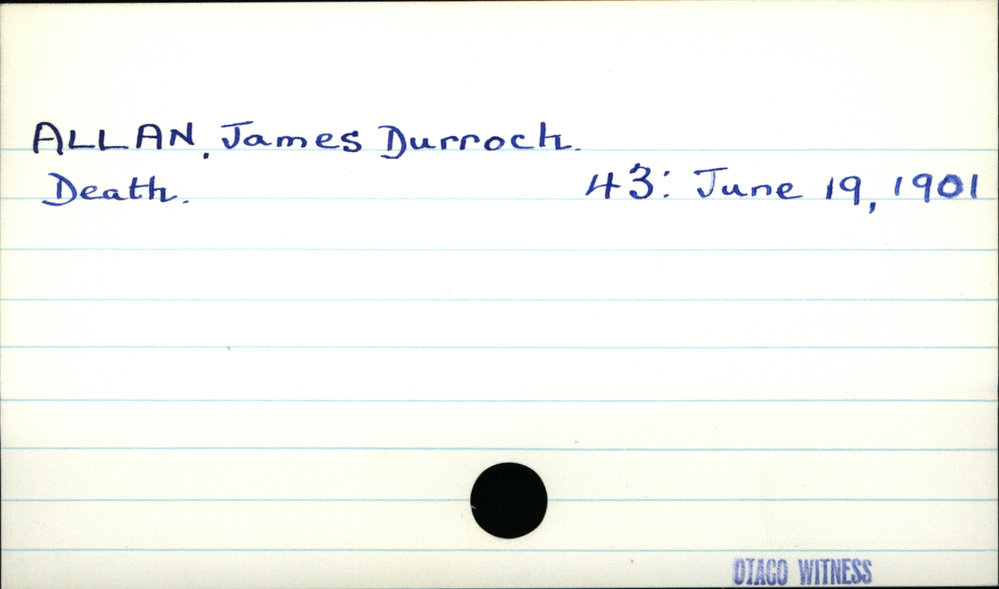 ALLAN, James Durroch.
Death. 43: June 19, 1901
OTAGO WITNESS